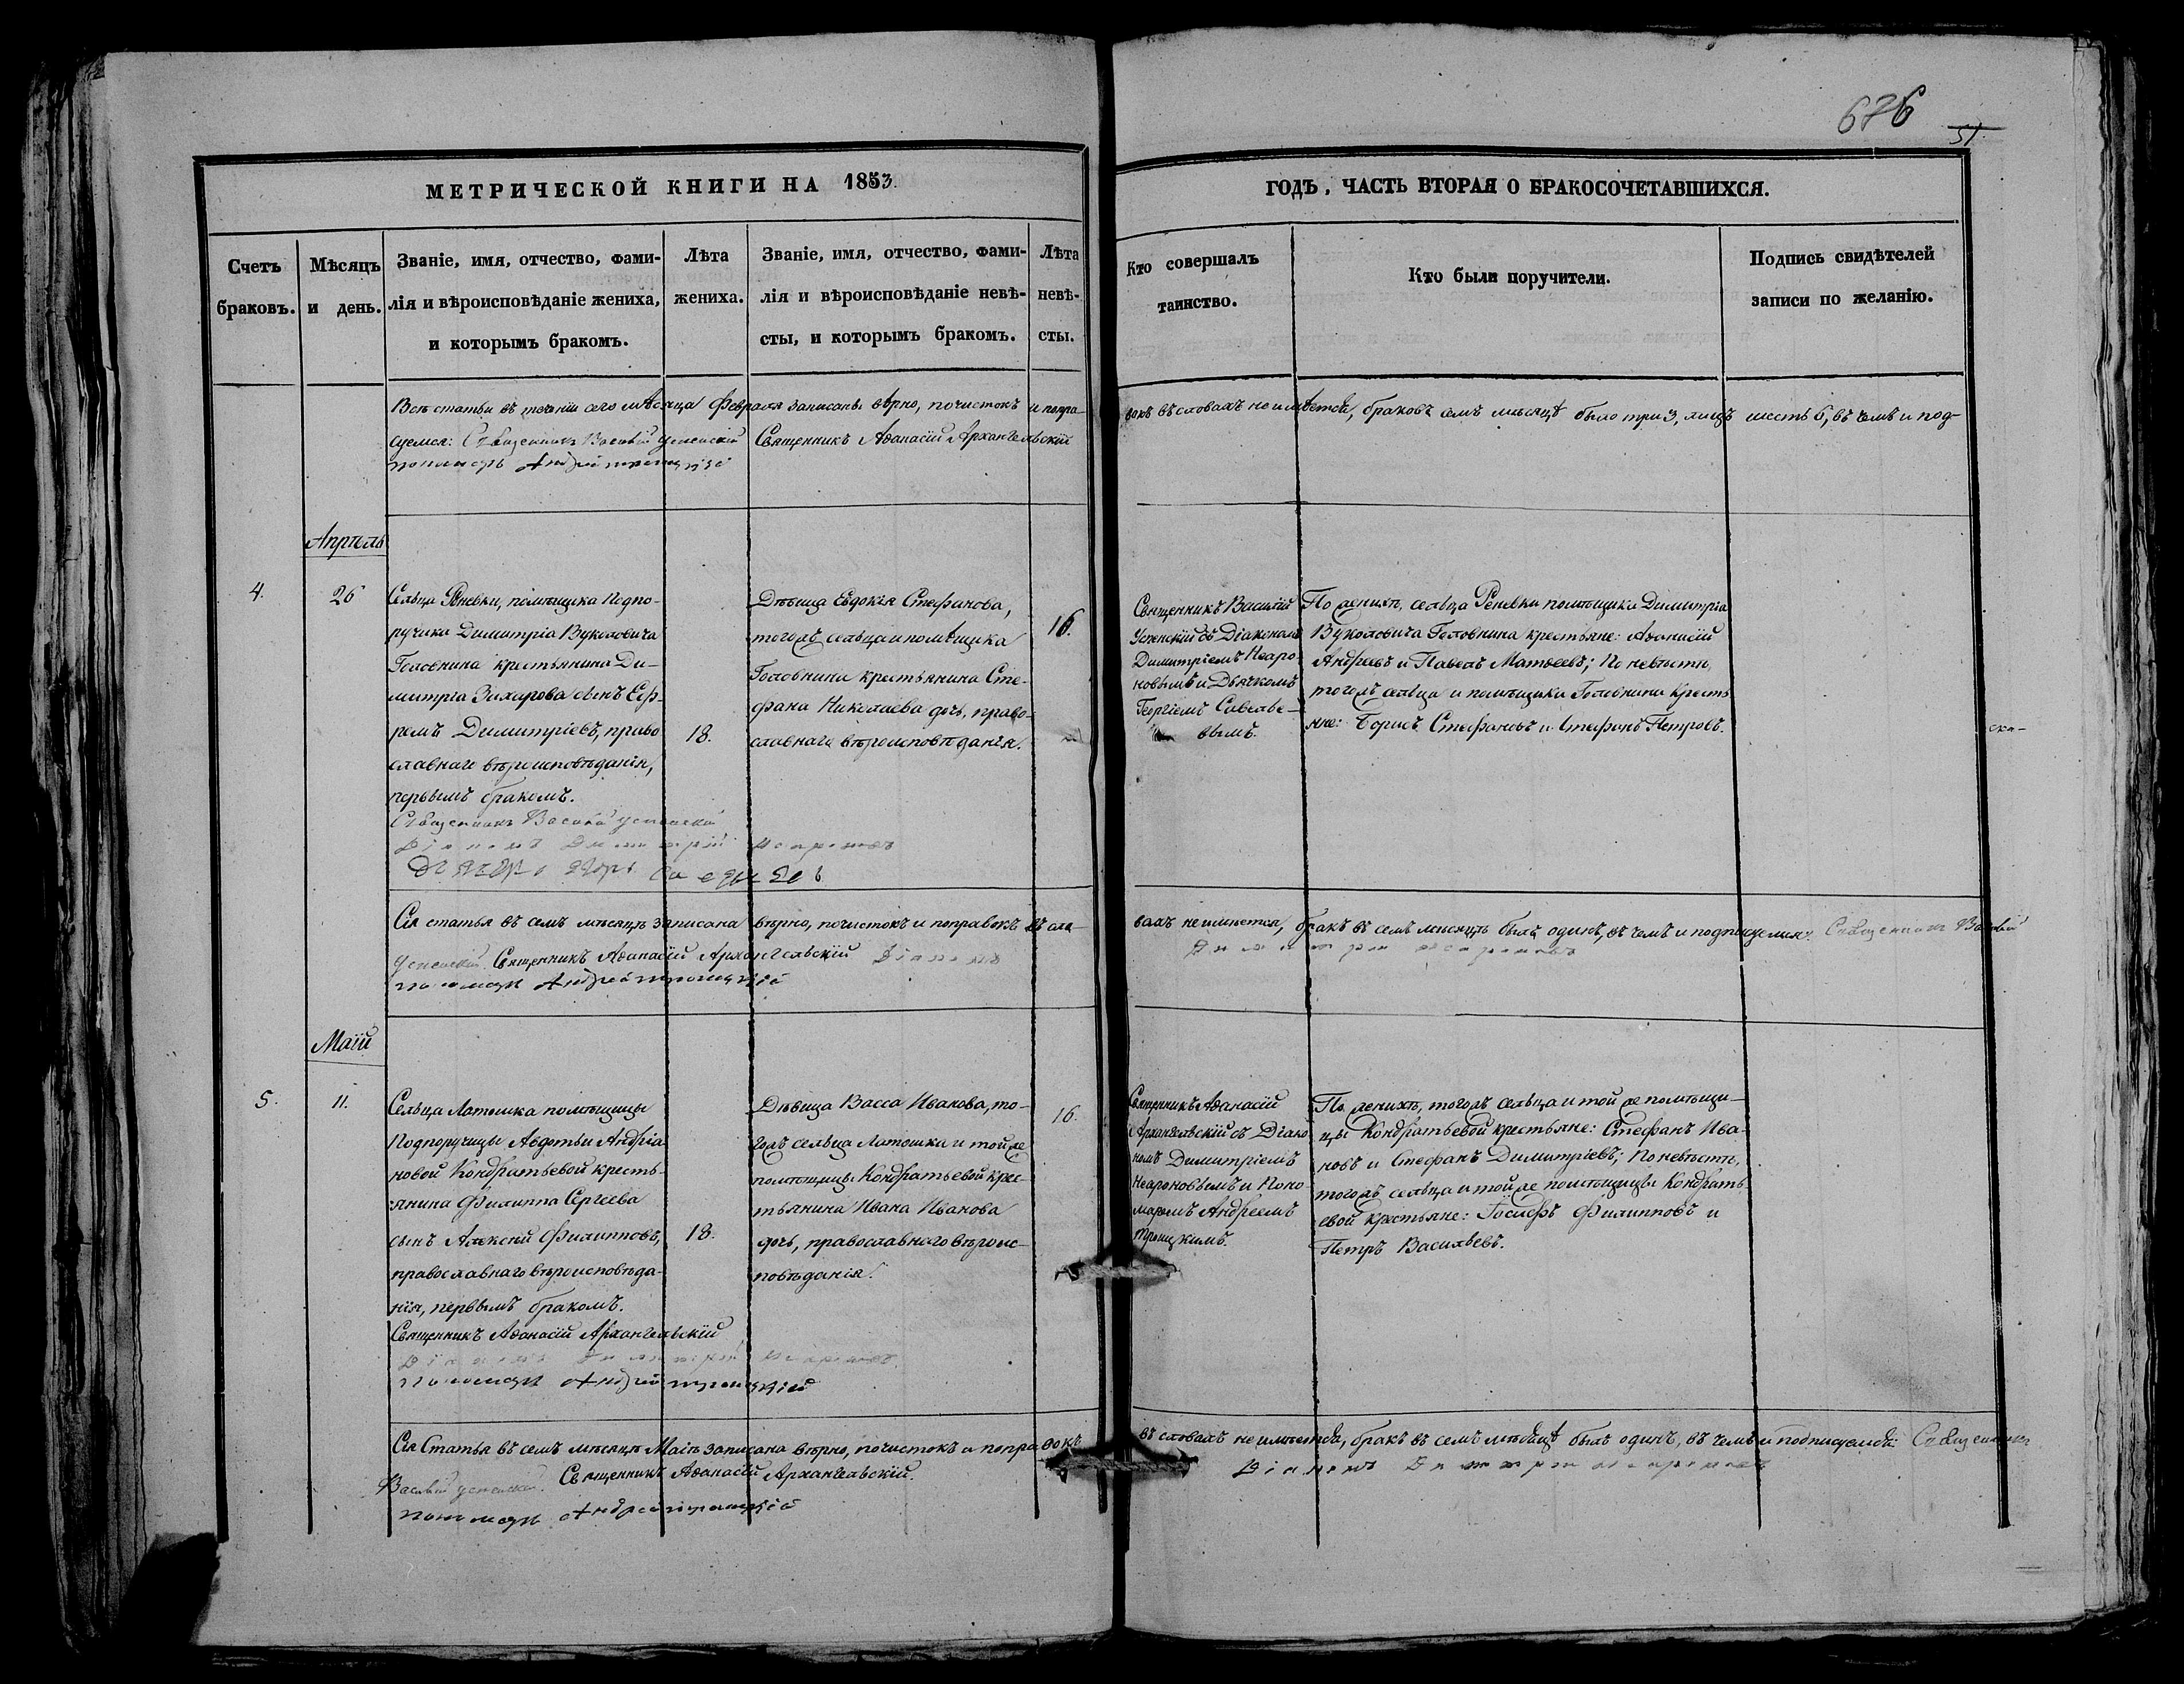 676
51
МЕТРИЧЕСКОЙ КНИГИ НА 1853.
ГОДЪ, ЧАСТЬ ВТОРАЯ О БРАКОСОЧЕТАВШИХСЯ.
Счетъ
браковъ.
Мѣсяцъ
и день.
Званіе, имя, отчество, фами-
лія и вѣроисповѣданіе жениха,
и которымъ бракомъ.
Лѣта
жениха.
Званіе, имя, отчество, фами-
лія и вѣроисповѣданіе невѣ-
сты, и которымъ бракомъ.
Лѣта
невѣ-
сты.
Кто совершалъ
таинство.
Кто были поручители.
Подпись свидѣтелей
записи по желанію.
Всѣ статьи въ теченіи сего мѣсяца Февраля записаны вѣрно, почистокъ и попра-
вокъ въ словахъ не имѣется, браковъ семъ мѣсяцѣ было три 3, лицъ шесть 6, въ чемъ и под-
суемся: Священникъ Василій Успенскій Священникъ Аѳанасій Архангельскій
пономарь Андрей Троицкій
Апрѣль
4.
26
Сельца Реневки, помѣщика Подпо-
ручика Димитрія Вуколовича
Головнина крестьянина Ди-
митрія Захарова сынъ Еф-
ремъ Димитріевъ, право
славнаго вѣроисповѣданія,
первымъ бракомъ.
18.
Дѣвица Евдокія Стефанова,
тогожъ сельца и помѣщика
Головнина крестьянина Сте-
фана Николаева дочь, право-
славнаго вѣроисповѣданія.
16.
Священникъ Василій
Успенскій съ Діакономъ
Димитріемъ Неаро-
новымъ и Дьячкомъ
Георгіемъ Савелье-
вымъ.
По женихѣ, сельца Реневки помѣщика Димитрія
Вуколовича Головнина крестьяне: Аѳанасій
Андреевъ и Павелъ Матвеевъ; По невѣстѣ,
тогожъ сельца и помѣщика Головнина кресть
яне: Борисъ Стефановъ и Стефанъ Петровъ.
Священникъ Василій Успенскій
Діаконъ Димитрій Неароновъ
Сія статья въ семъ мѣсяцѣ записана вѣрно, почистокъ и поправокъ въ сло-
вахъ не имѣется, бракъ въ семъ мѣсяцѣ былъ одинъ, въ чемъ и подписуемся: Священникъ Василій
Успенскій. Священникъ Аѳанасій Архангельскій Діаконъ
Димитрій Неароновъ
пономарь Андрей Троицкій
Маій
5.
11.
Сельца Латошка помѣщицы
Подпоручицы Авдотьи Андріа
новой Кондратьевой кресть-
янина Филиппа Сергеева
сынъ Алексій Филипповъ,
православнаго вѣроисповѣда-
нія, первымъ бракомъ.
18.
Дѣвица Васса Иванова, то-
гожъ сельца Латошки и тойже
помѣщицы Кондратьевой крес-
тьянина Ивана Иванова
дочь, православнаго вѣроис-
повѣданія.
16.
Священникъ Аѳанасій
Архангельскій съ Діако
номъ Димитріемъ
Неароновымъ и Поно-
маремъ Андреемъ
Троицкимъ.
По женихѣ, тогожъ сельца и той же помѣщи-
цы Кондратьевой крестьяне: Стефанъ Ива-
новъ и Стефанъ Димитріевъ; По невѣстѣ,
тогожъ сельца и тойже помѣщицы Кондрать
евой крестьяне: Іосифъ Филипповъ и
Петръ Васильевъ.
Священникъ Аѳанасій Архангельскій
Діаконъ Димитрій Неароновъ
пономарь Андрей Троицкій
Сія Статья въ семъ мѣсяцѣ Маіѣ записана вѣрно, почистокъ и поправокъ
въ словахъ не имѣется, бракъ въ семъ мѣсяцѣ былъ одинъ, въ чемъ и подписуемся: Священникъ
Василій Успенскій. Священникъ Аѳанасій Архангельскій.
Діаконъ Димитрій Неароновъ
пономарь Андрей Троицкій